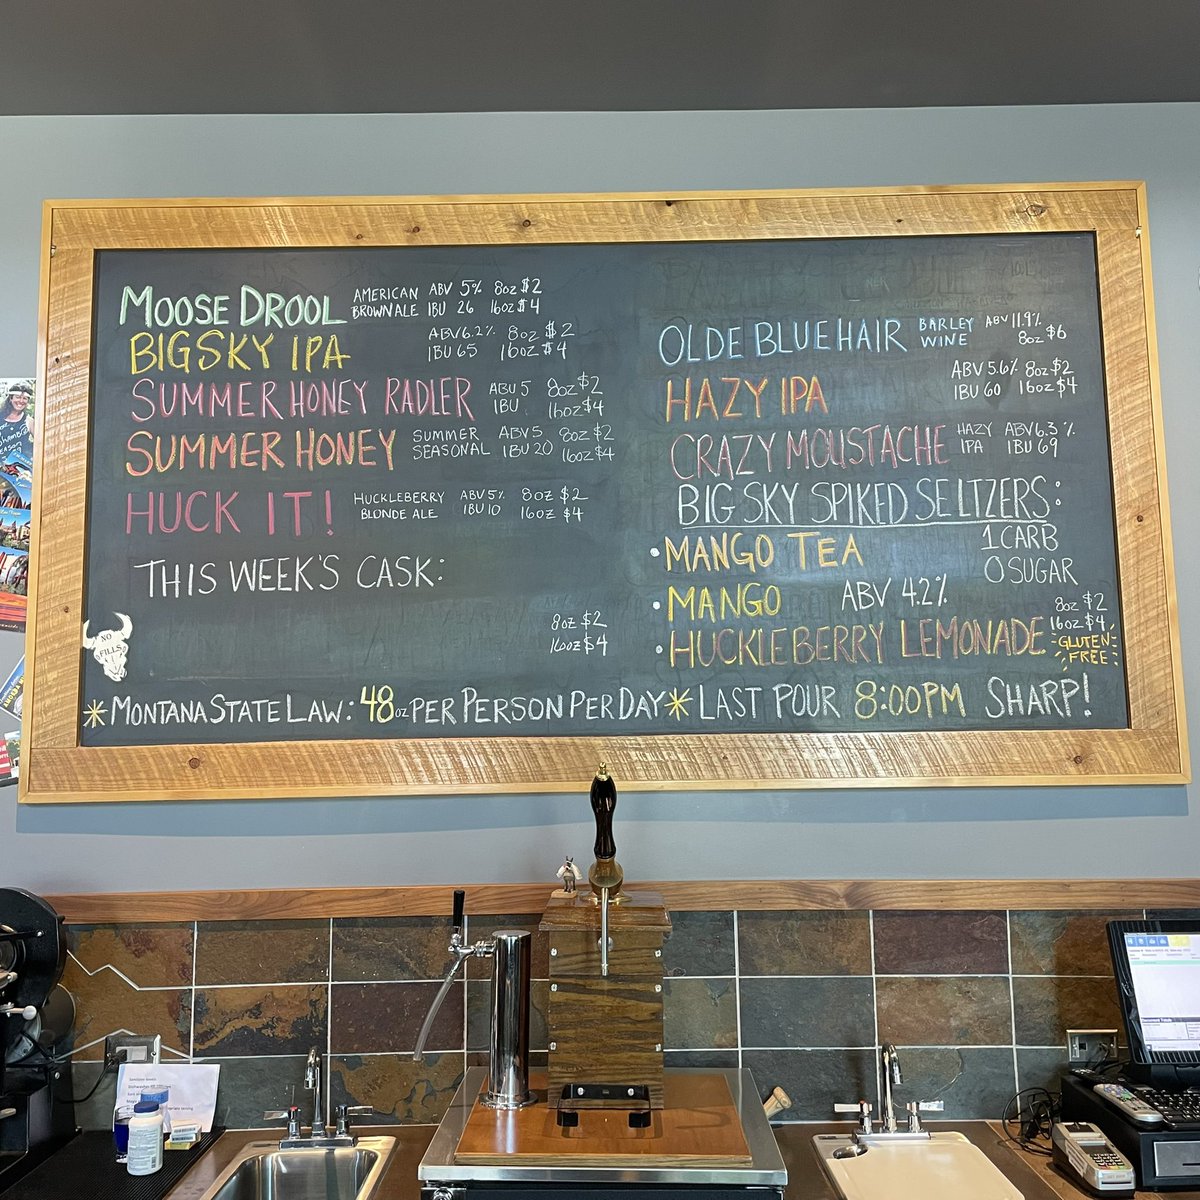 MOOSE DROOL AMERICAN BROWN ALE ABV 5% IBU 26 8oz $2 16oz $4
BIG SKY IPA ABV 6.2% IBU 65 8oz $2 16oz $4
SUMMER HONEY RADLER ABV 5 IBU 8oz $2 16oz $4
SUMMER HONEY SUMMER SEASONAL ABV 5 IBU 20 8oz $2 16oz $4
HUCK IT! HUCKLEBERRY BLONDE ALE ABV 5% IBU 10 8oz $2 16oz $4
THIS WEEK'S CASK:
8oz $2
16oz $4
NO FILLS
OLDE BLUE HAIR BARLEY WINE ABV 11.9% 8oz $6
HAZY IPA ABV 5.6% IBU 60 8oz $2 16oz $4
CRAZY MOUSTACHE HAZY IPA ABV 6.3% IBU 69
BIG SKY SPIKED SELTZERS:
• MANGO TEA 1 CARB
0 SUGAR
• MANGO ABV 4.2% 8oz $2
16oz $4
• HUCKLEBERRY LEMONADE GLUTEN FREE
* MONTANA STATE LAW: 48oz PER PERSON PER DAY * LAST POUR 8:00PM SHARP!